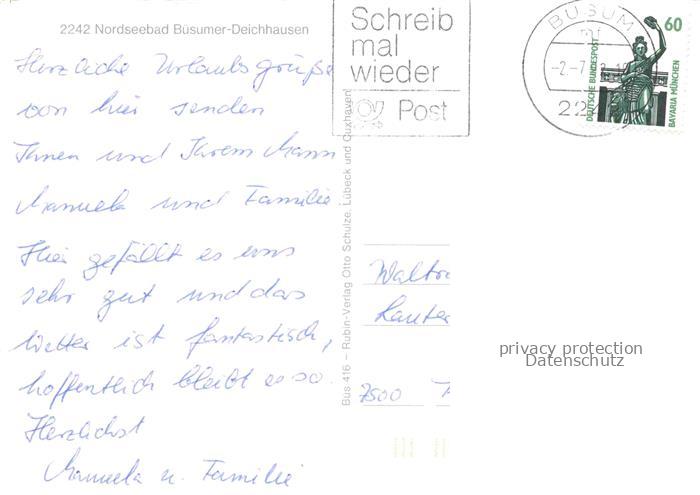 2242 Nordseebad Büsumer-Deichhausen
Herzliche Urlaubsgrüße
von hier senden
Ihnen und Ihrem Mann
Manuela und Familie
Hier gefällt es uns
sehr gut und das
Wetter ist fantastisch,
hoffentlich bleibt es so.
Herzlichst
Manuela u. Familie
Büs 416 – Rubin-Verlag Otto Schulze, Lübeck und Cuxhaven
Schreib
mal
wieder
Post
BÜSUM
-2.-7.
22
60
DEUTSCHE BUNDESPOST
BAVARIA MÜNCHEN
Waltr
Lauter
7500
privacy protection
Datenschutz